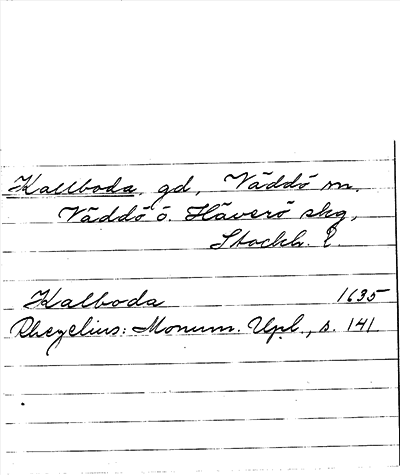 Kallboda, gd, Väddö sn.
Väddö o. Häverö skg,
Stockh. l.
Kalboda 1635
Rhezelius: Monum. Upl., s. 141